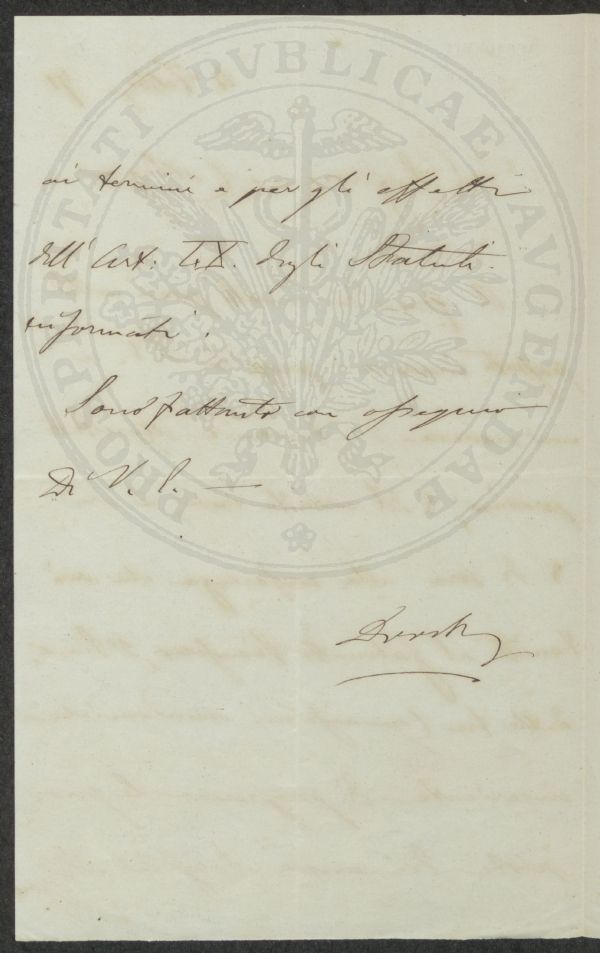 PROSPERITATI PVBLICAE AVGENDAE
ai termini e per gli effetti
dell' Art. degli Statuti
informati.
Sono frattanto con ossequio
Di V. S. —